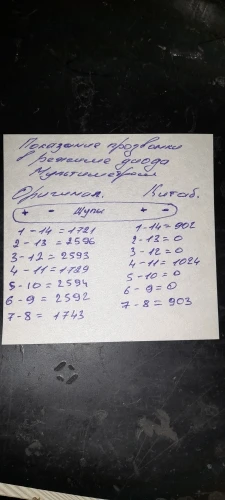 Показание прозвонки
в режиме диода
Мультиметром
Оригинал. Китай.
+ - Щупы + -
1-14=1721 1-14=902
2-13=2596 2-13=0
3-12=2593 3-12=0
4-11=1729 4-11=1024
5-10=2594 5-10=0
6-9=2592 6-9=0
7-8=1743 7-8=903